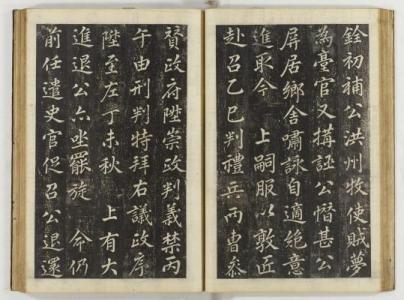 銓初補公洪州牧使賊夢
為臺官又搆誣公憯甚公
屏居鄉舍嘯詠自適絶意
進取今 上嗣服以敦匠
赴召乙巳判禮兵兩曹叅
贊政府陞崇政判義禁丙
午由刑判特拜右議政序
陞至左丁未秋 上有大
進退公亦坐罷旋 命仍
前任遣史官促召公退還